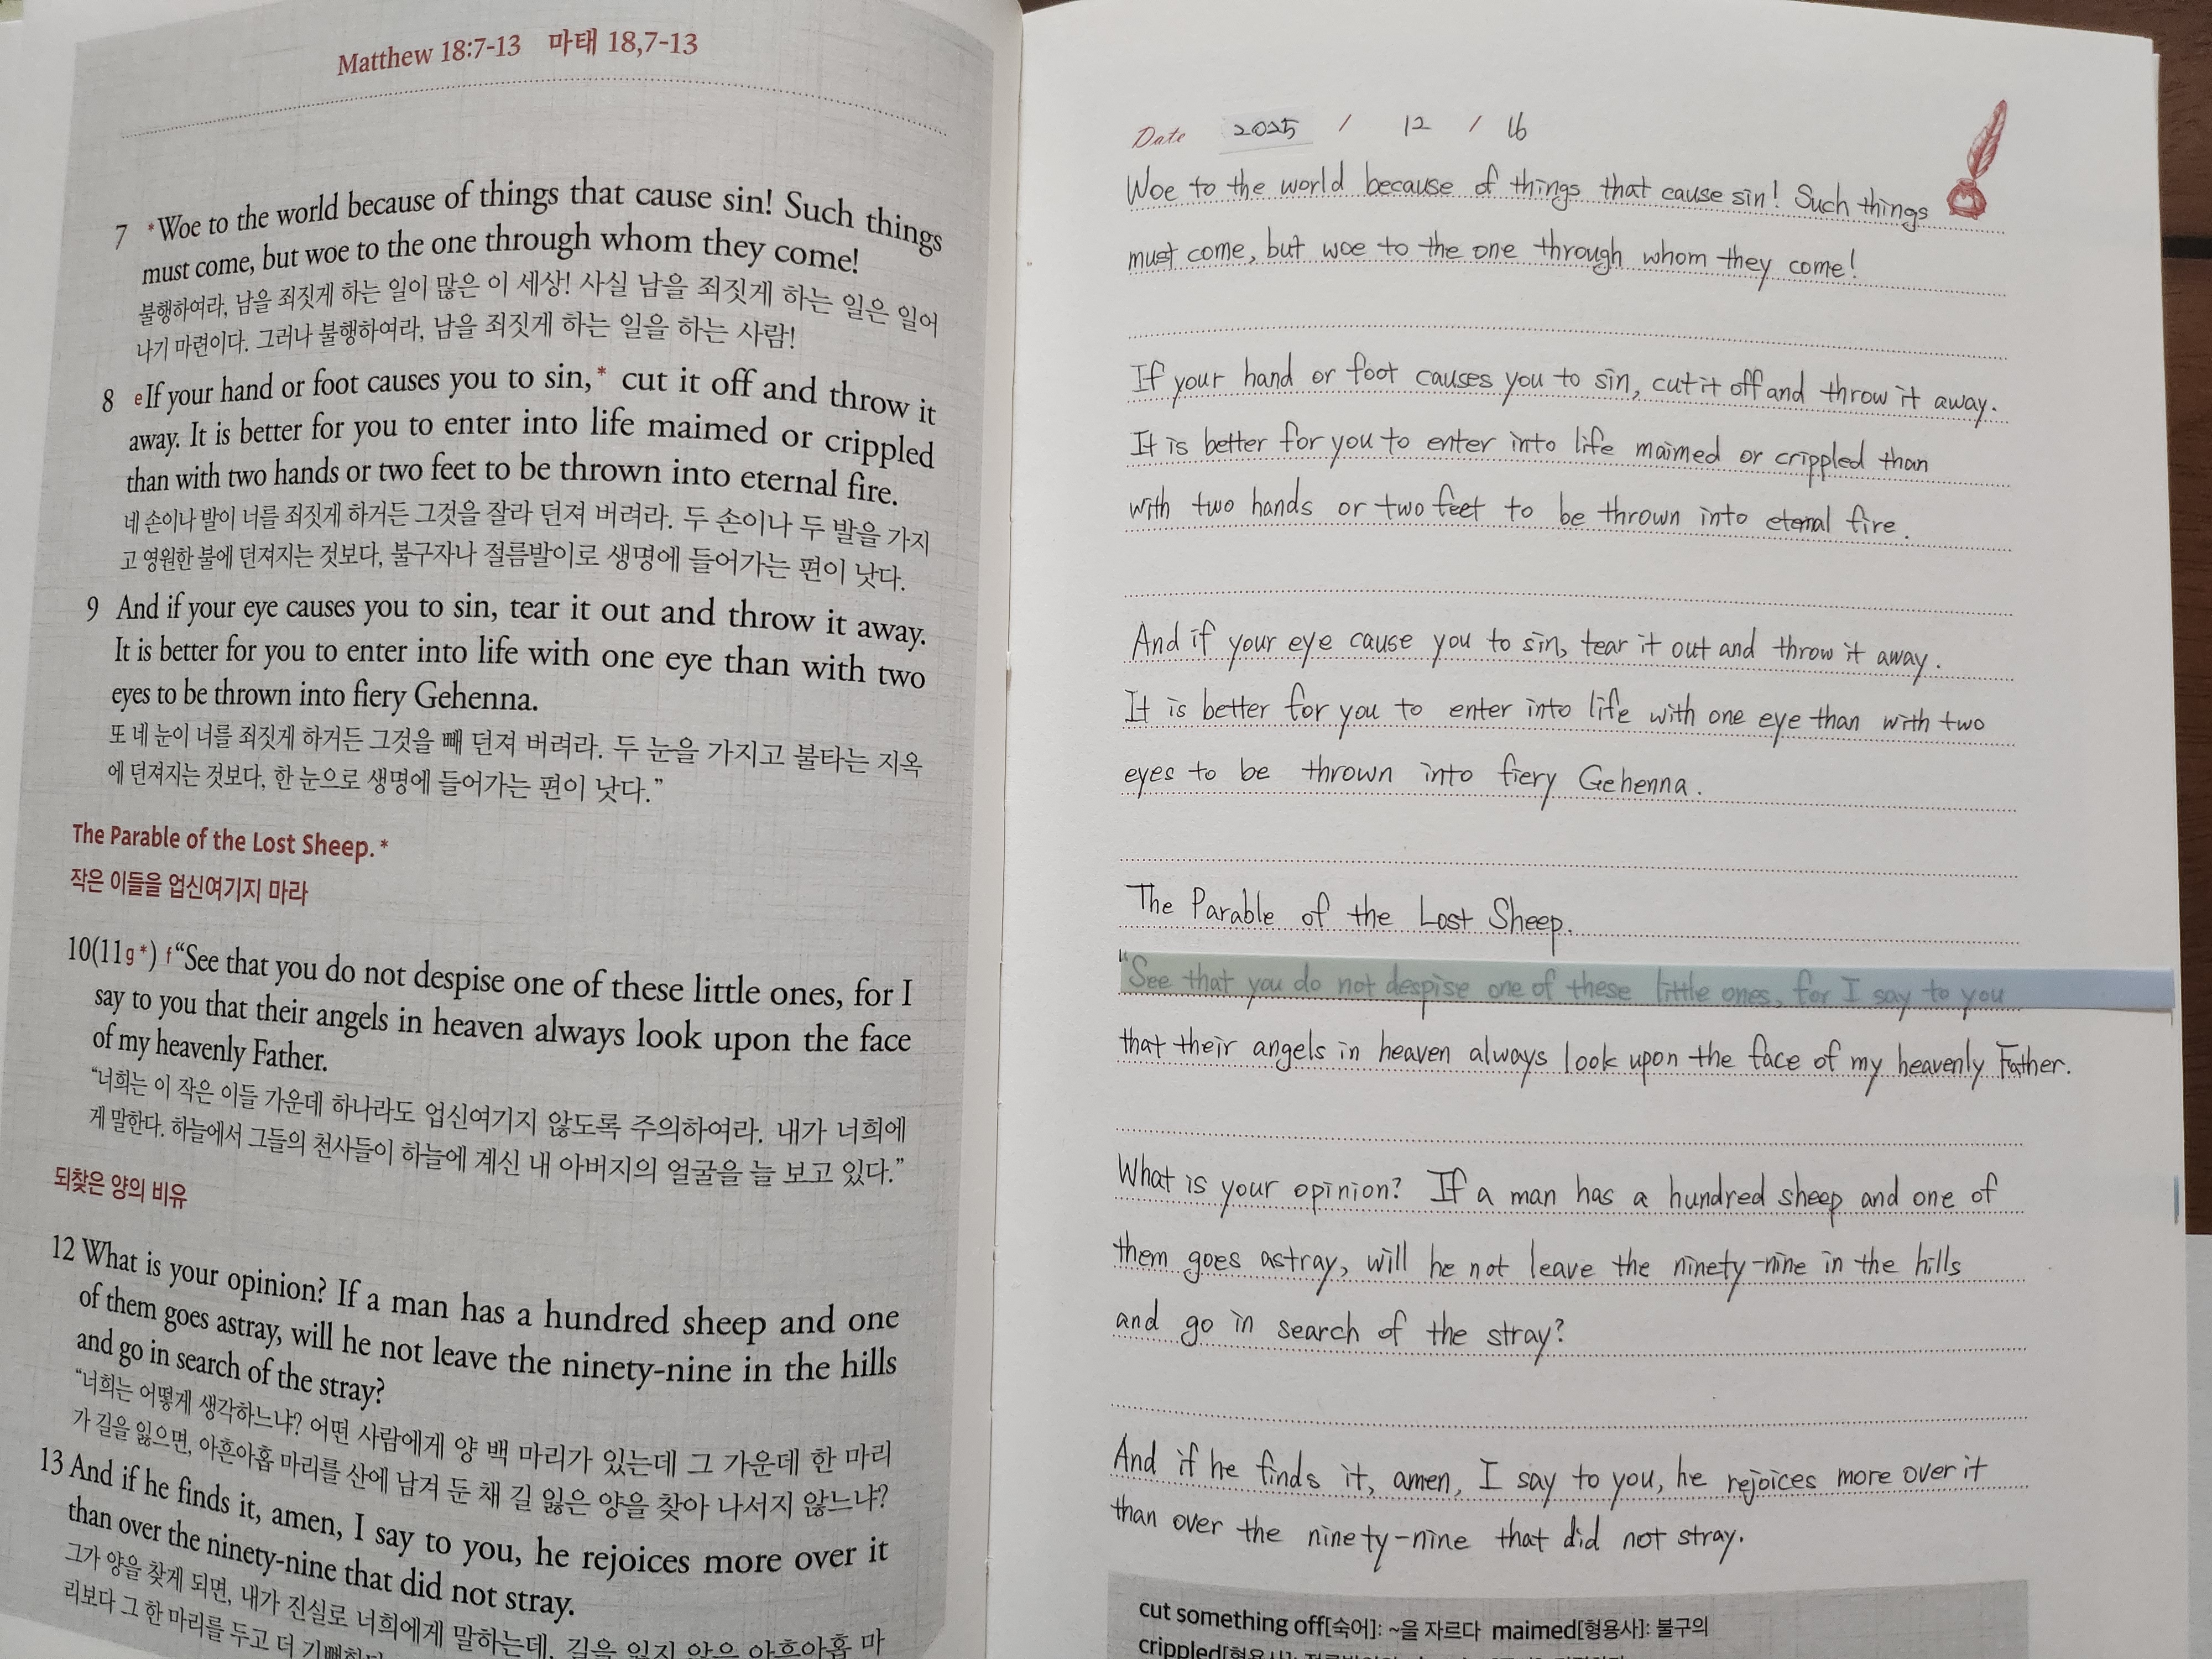 Matthew 18:7-13 마태 18,7-13
7 *Woe to the world because of things that cause sin! Such things
must come, but woe to the one through whom they come!
불행하여라, 남을 죄짓게 하는 일이 많은 이 세상! 사실 남을 죄짓게 하는 일은 일어
나기 마련이다. 그러나 불행하여라, 남을 죄짓게 하는 일을 하는 사람!
8 eIf your hand or foot causes you to sin,* cut it off and throw it
away. It is better for you to enter into life maimed or crippled
than with two hands or two feet to be thrown into eternal fire.
네 손이나 발이 너를 죄짓게 하거든 그것을 잘라 던져 버려라. 두 손이나 두 발을 가지
고 영원한 불에 던져지는 것보다, 불구자나 절름발이로 생명에 들어가는 편이 낫다.
9 And if your eye causes you to sin, tear it out and throw it away.
It is better for you to enter into life with one eye than with two
eyes to be thrown into fiery Gehenna.
또 네 눈이 너를 죄짓게 하거든 그것을 빼 던져 버려라. 두 눈을 가지고 불타는 지옥
에 던져지는 것보다, 한 눈으로 생명에 들어가는 편이 낫다.”
The Parable of the Lost Sheep.*
작은 이들을 업신여기지 마라
10(11g*) f“See that you do not despise one of these little ones, for I
say to you that their angels in heaven always look upon the face
of my heavenly Father.
“너희는 이 작은 이들 가운데 하나라도 업신여기지 않도록 주의하여라. 내가 너희에
게 말한다. 하늘에서 그들의 천사들이 하늘에 계신 내 아버지의 얼굴을 늘 보고 있다.”
되찾은 양의 비유
12 What is your opinion? If a man has a hundred sheep and one
of them goes astray, will he not leave the ninety-nine in the hills
and go in search of the stray?
“너희는 어떻게 생각하느냐? 어떤 사람에게 양 백 마리가 있는데 그 가운데 한 마리
가 길을 잃으면, 아흔아홉 마리를 산에 남겨 둔 채 길 잃은 양을 찾아 나서지 않느냐?
13 And if he finds it, amen, I say to you, he rejoices more over it
than over the ninety-nine that did not stray.
그가 양을 찾게 되면, 내가 진실로 너희에게 말하는데, 길을 잃지 않은 아흔아홉 마
리보다 그 한 마리를 두고 더
Date 2025 / 12 / 16
Woe to the world because of things that cause sin! Such things
must come, but woe to the one through whom they come!
If your hand or foot causes you to sin, cut it off and throw it away.
It is better for you to enter into life maimed or crippled than
with two hands or two feet to be thrown into eternal fire.
And if your eye cause you to sin, tear it out and throw it away.
It is better for you to enter into life with one eye than with two
eyes to be thrown into fiery Gehenna.
The Parable of the Lost Sheep.
“See that you do not despise one of these little ones, for I say to you
that their angels in heaven always look upon the face of my heavenly Father.
What is your opinion? If a man has a hundred sheep and one of
them goes astray, will he not leave the ninety-nine in the hills
and go in search of the stray?
And if he finds it, amen, I say to you, he rejoices more over it
than over the ninety-nine that did not stray.
cut something off[숙어]: ~을 자르다 maimed[형용사]: 불구의